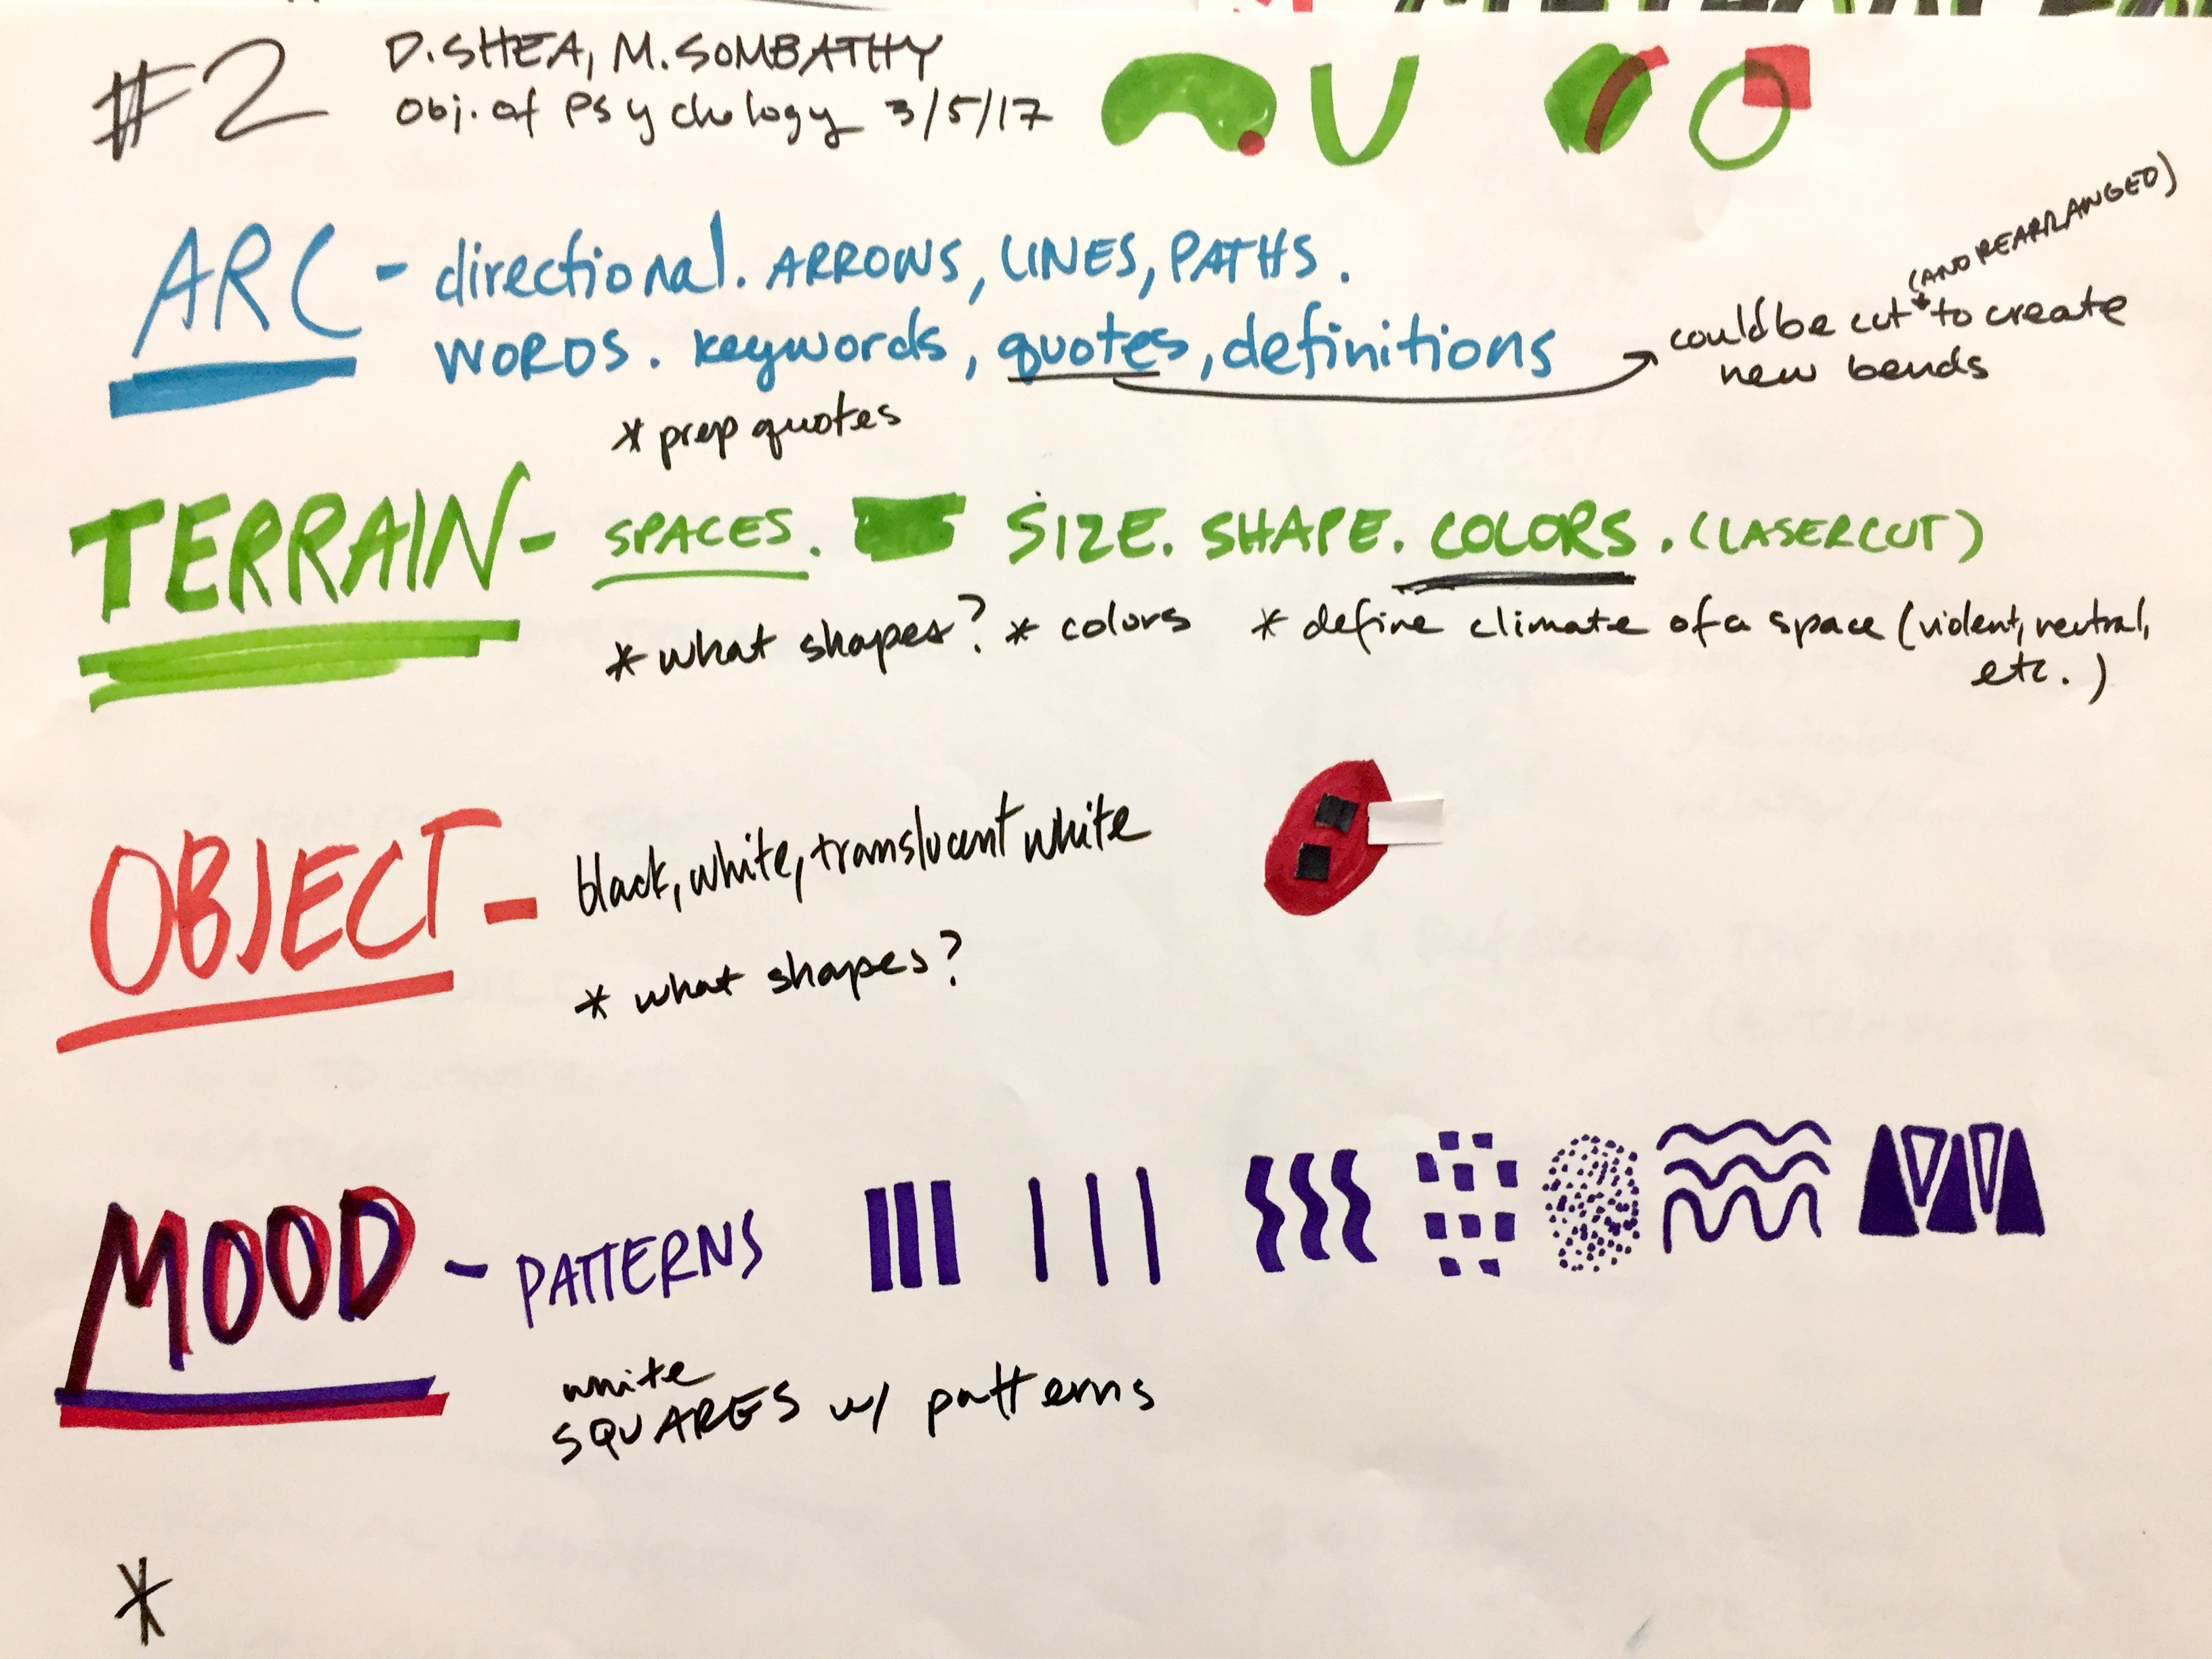 #2
D. SHEA, M. SOMBATHY
Obj. of Psychology 3/5/17
ARC - directional. ARROWS, LINES, PATHS.
WORDS. keywords, quotes, definitions
(AND REARRANGED)
could be cut to create
new bends
* prep quotes
TERRAIN - SPACES. SIZE. SHAPE. COLORS. (LASERCUT)
* what shapes? * colors * define climate of a space (violent, neutral,
etc.)
OBJECT - black, white, translucent white
* what shapes?
MOOD - PATTERNS
white
SQUARES w/ patterns
*